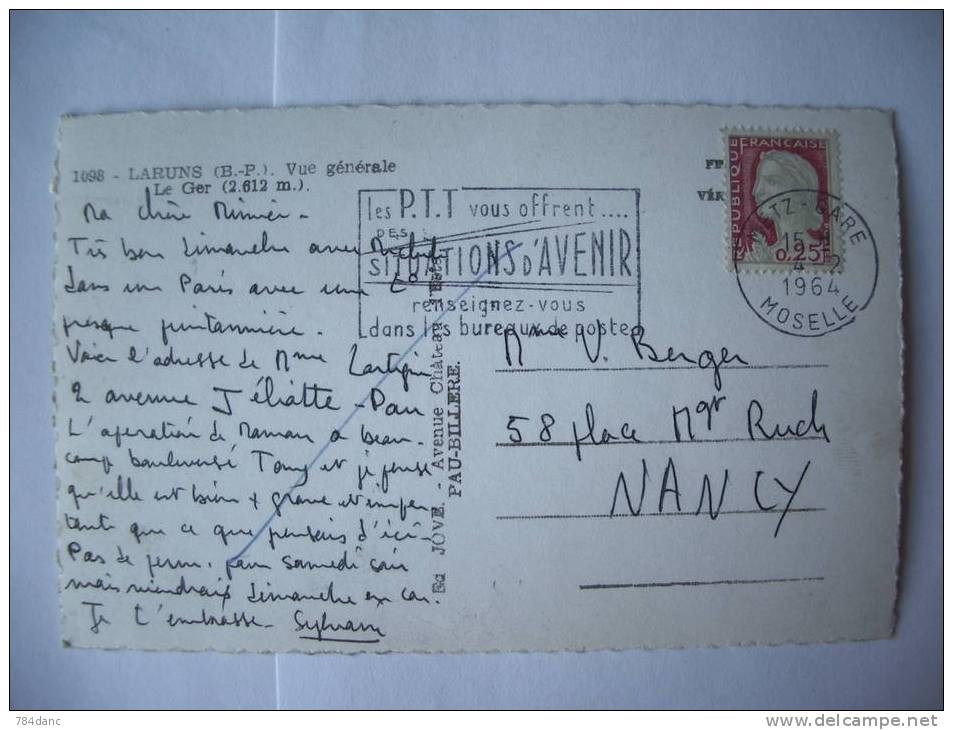 1098 - LARUNS (B.-P.). Vue générale
Le Ger (2.612 m.).
Ma chère
Très bon dimanche avec
dans un Paris avec une t°
presque printannière.
Voici l'adresse de Mme
2 avenue Jéliotte - Pau
L'opération de Maman a beau-
coup bouleversé Tony et je pense
qu'elle est bien + grave et
que ce que pensais d'ici.
Pas de perm. pour samedi soir
mais viendrais dimanche en car.
Je t'embrasse. Sylvain
Ed JOVE. - Avenue Château
PAU-BILLERE.
les P.T.T vous offrent....
DES
SITUATIONS D'AVENIR
renseignez-vous
dans les bureaux de poste
RÉPUBLIQUE FRANÇAISE
0,25
METZ-GARE
15
4 - 2
1964
MOSELLE
Mme V. Berger
58 place Mgr Ruch
NANCY
784danc
delcampe.net